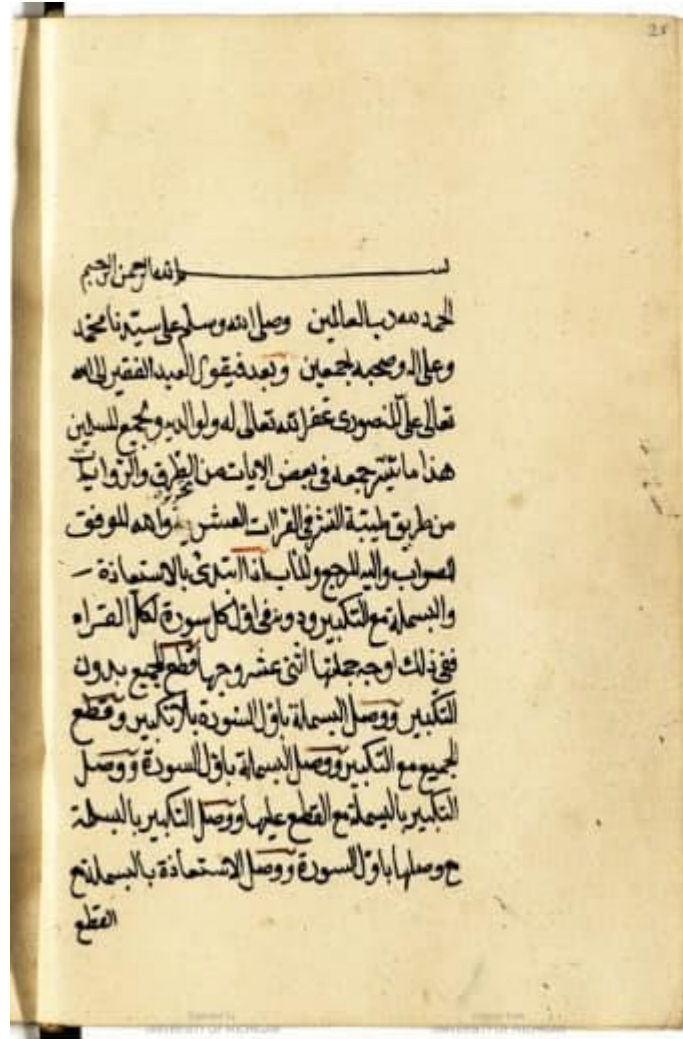 25
بسم الله الرحمن الرحيم
الحمد لله رب العالمين وصلى الله وسلم على سيدنا محمد
وعلى اله وصحبه اجمعين وبعد فيقول العبد الفقير الى الله
تعالى على المنصورى غفر الله تعالى له ولوالديه ولجميع المسلمين
هذا ما تيسر جمعه فى بعض الايات من الطرق والروايات
من طريق طيبة النشر فى القراات العشر والله الموفق
للصواب واليه المرجع والمأب اذا ابتدئ بالاستعاذة
والبسملة مع التكبير ودونه فى اول كل سورة لكل القراء
ففى ذلك اوجه جملتها اثنى عشر وجها قطع الجميع بدون
التكبير ووصل البسملة باول السورة بلا تكبير وقطع
الجميع مع التكبير ووصل البسملة باول السورة ووصل
التكبير بالبسملة مع القطع عليها ووصل التكبير بالبسملة
مع وصلها باول السورة ووصل الاستعاذة بالبسملة مع
القطع
UNIVERSITY OF MICHIGAN
UNIVERSITY OF MICHIGAN